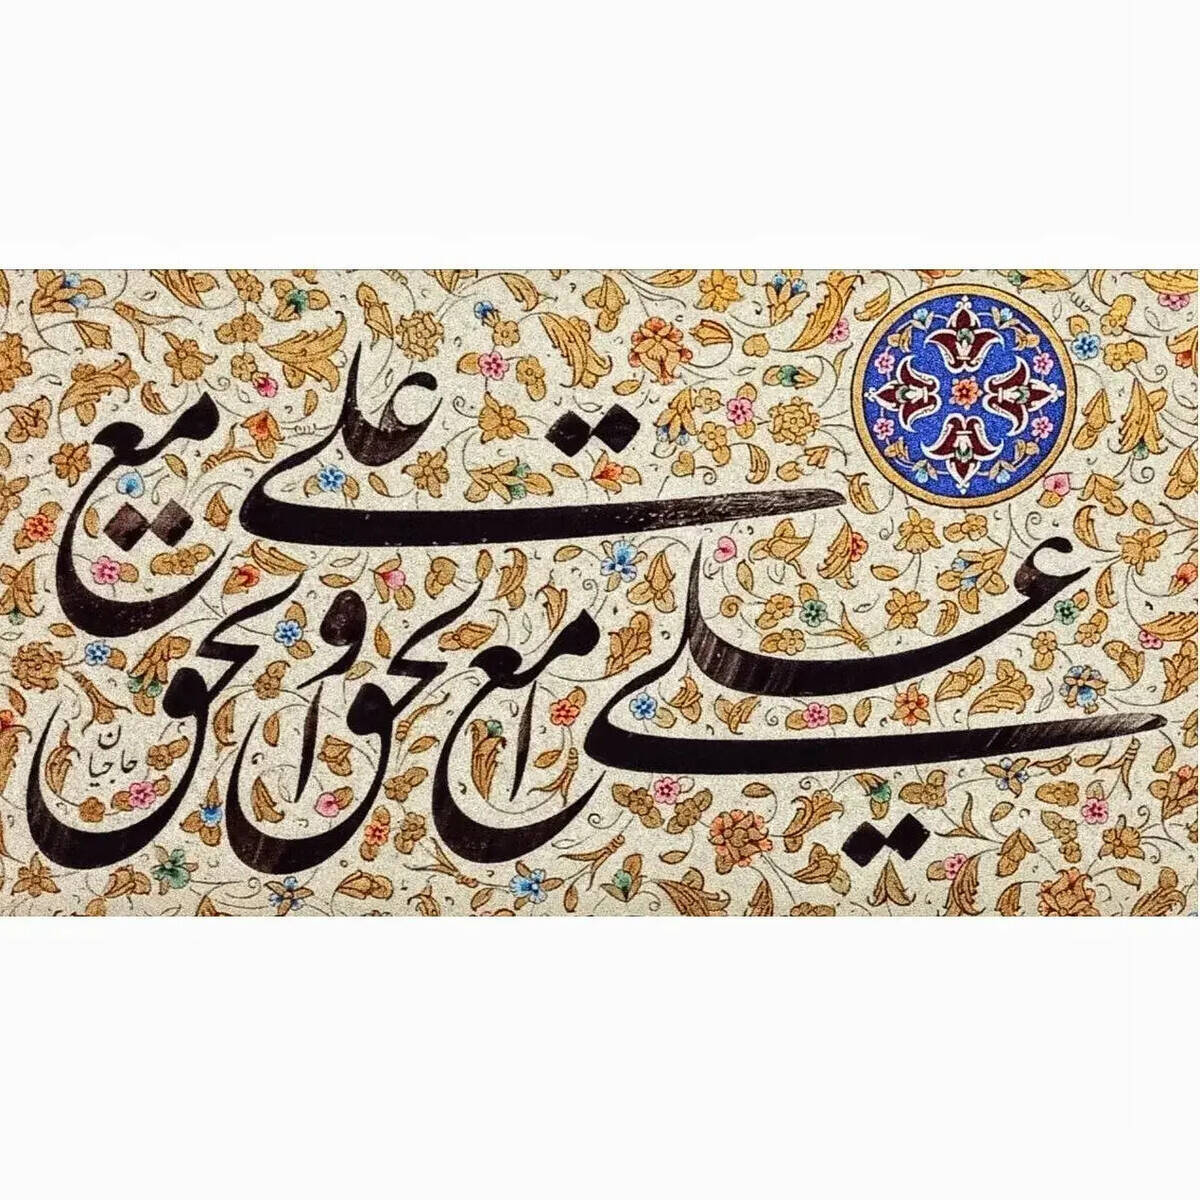 علی مع الحق و الحق
مع علی
حاجیان